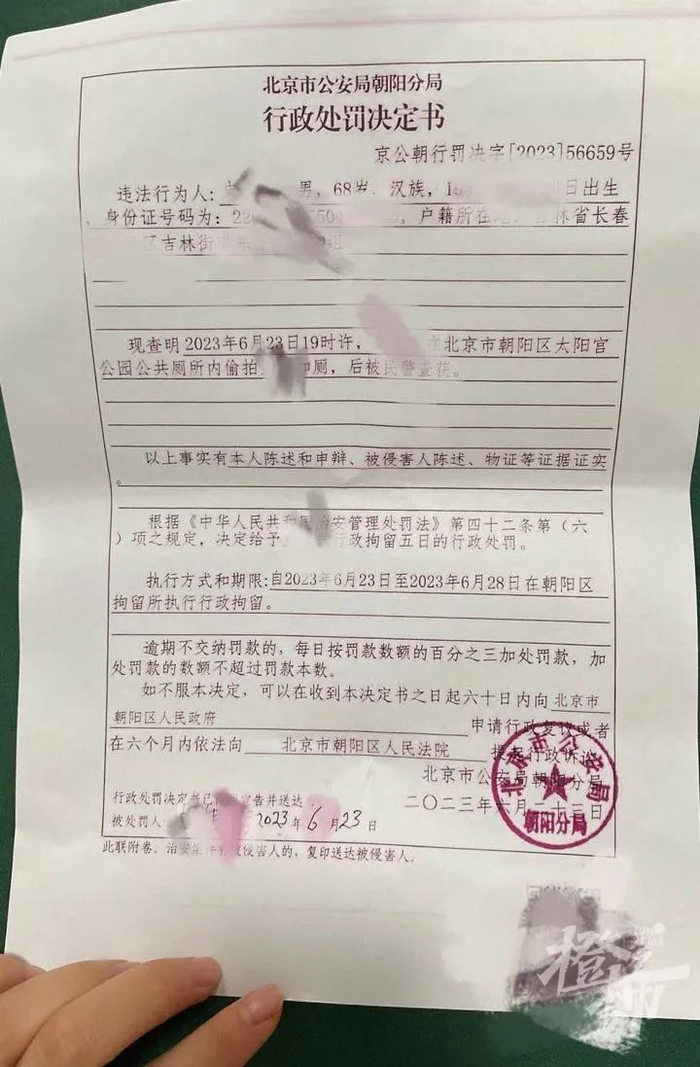 北京市公安局朝阳分局
行政处罚决定书
京公朝行罚决字[2023]56659号
违法行为人: 男，68岁，汉族，19 日出生
，身份证号码为：22 504 ，户籍所在地 林省长春
区吉林街
现查明2023年6月23日19时许， 北京市朝阳区太阳宫
公园公共厕所内偷拍 厕，后被民警查获。
以上事实有本人陈述和申辩、被侵害人陈述、物证等证据证实
。
根据《中华人民共和国治安管理处罚法》第四十二条第（六
）项之规定，决定给予 行政拘留五日的行政处罚。
执行方式和期限:自2023年6月23日至2023年6月28日在朝阳区
拘留所执行行政拘留。
逾期不交纳罚款的，每日按罚款数额的百分之三加处罚款，加
处罚款的数额不超过罚款本数。
如不服本决定，可以在收到本决定书之日起六十日内向北京市
朝阳区人民政府 申请行政复议或者
在六个月内依法向 北京市朝阳区人民法院 提起行政诉讼
北京市公安局朝阳分局
二〇二三年六月二十三日
北京市公安局
朝阳分局
行政处罚决定书已 宣告并送达
被处罚人 2023年6月23日
此联附卷。治安案件有被侵害人的，复印送达被侵害人。
橙